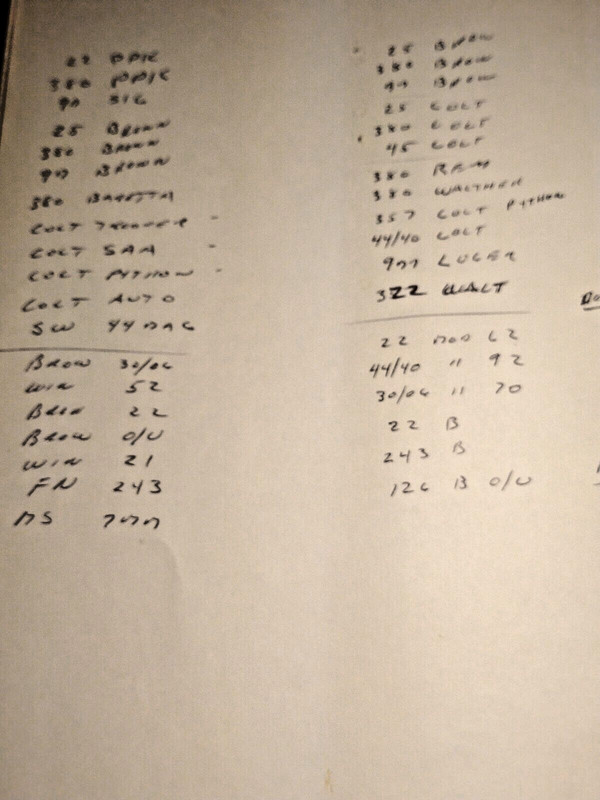 22 PPK
380 PPK
9M SIG
25 BROWN
380 BROWN
9M BROWN
380 BARETTA
COLT TROOPER -
COLT SAA -
COLT PYTHON -
COLT AUTO
SW 44 MAG
BROW 30/06
WIN 52
BROW 22
BROW O/U
WIN 21
FN 243
MS 7MM
25 BROW
380 BROW
9M BROW
25 COLT
380 COLT
45 COLT
380 REM
380 WALTHER
357 COLT PYTHON
44/40 COLT
9MM LUGER
322 WALT
22 MOD 62
44/40 " 92
30/06 " 70
22 B
243 B
12G B O/U